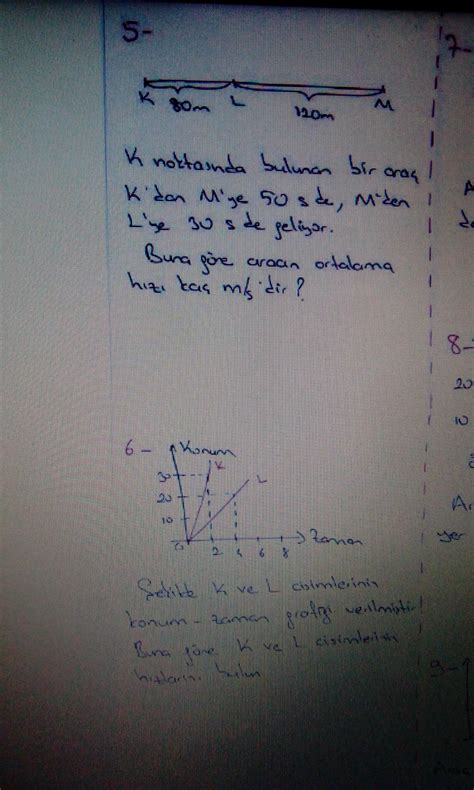 5-
K 80m L 120m M
K noktasında bulunan bir araç
K'dan M'ye 50 s de, M'den
L'ye 30 s de geliyor.
Buna göre aracın ortalama
hızı kaç m/s'dir?
6- Konum
K
L
30
20
10
0 2 4 6 8 Zaman
Şekilde K ve L cisimlerinin
konum-zaman grafiği verilmiştir.
Buna göre K ve L cisimlerinin
hızlarını bulun
7-
A
de
8-
20
10
A
yer
9-